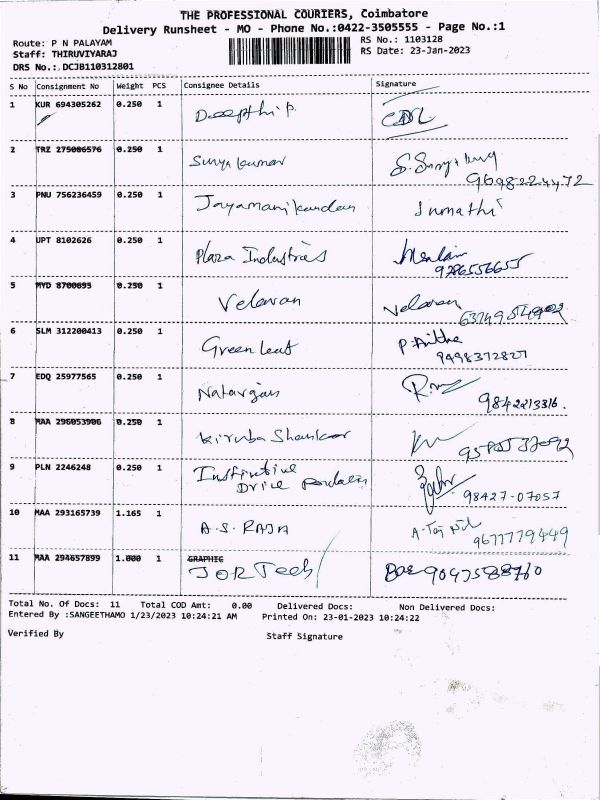 THE PROFESSIONAL COURIERS, Coimbatore
Delivery Runsheet - MO - Phone No.:0422-3505555 - Page No.:1
Route: P N PALAYAM
RS No.: 1103128
Staff: THIRUVIYARAJ
RS Date: 23-Jan-2023
DRS No.: DCJB110312801
S No Consignment No Weight PCS Consignee Details Signature
1 KUR 694305262 0.250 1 Deepthi P
2 TRZ 275086576 0.250 1 Surya kumar
9698224472
3 PNU 756236459 0.250 1 Jayamanikandan Sumathi
4 UPT 8102626 0.250 1 Plaza Industries
9286556655
5 MYD 8700695 0.250 1 Velavan Velavan
6 SLM 312200413 0.250 1 Green leaf
9498372827
7 EDQ 25977565 0.250 1 Natarajan
9842213316.
8 MAA 296053906 0.250 1 Kiruba Shankar
9 PLN 2246248 0.250 1 Instinctive
Drive
98427-07057
10 MAA 293165739 1.165 1 A.S. RAJA
9677779449
11 MAA 294657899 1.000 1 GRAPHIC
JOR Tech 9047588760
Total No. Of Docs: 11 Total COD Amt: 0.00 Delivered Docs: Non Delivered Docs:
Entered By :SANGEETHAMO 1/23/2023 10:24:21 AM Printed On: 23-01-2023 10:24:22
Verified By Staff Signature